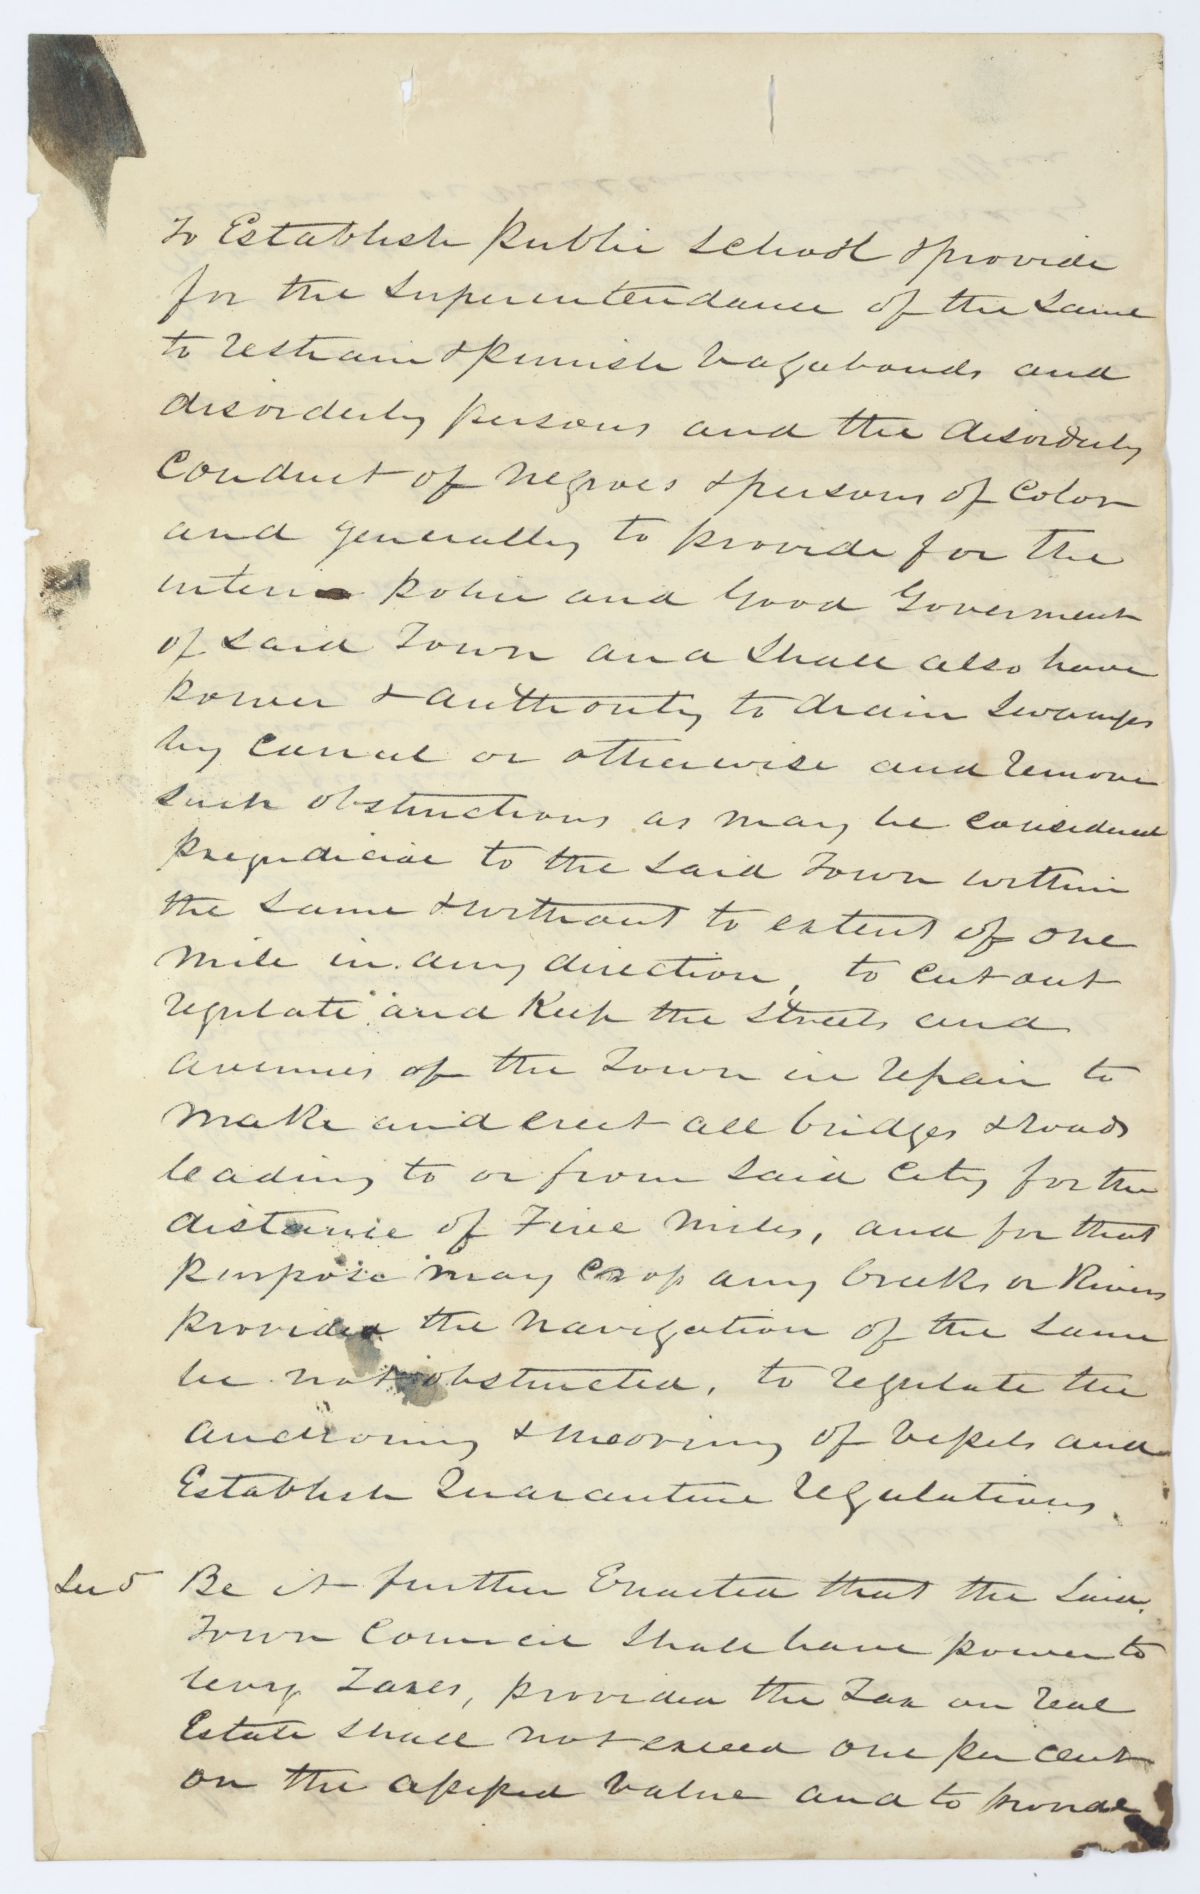 To Establish public School & provide
for the Superintendance of the Same
to restrain & punish Vagabonds and
disorderly persons and the disorderly
Conduct of negroes & persons of Color
and generally to provide for the
interior police and Good Goverment
of Said Town and Shall also have
power & authority to drain Swamps
by Canal or otherwise and remove
Such obstructions as may be considered
prejudicial to the Said Town within
the Same & without to extent of one
mile in any direction, to cut out
regulate and Keep the Streets and
avenues of the Town in repair to
make and erect all bridges & roads
leading to or from Said City for the
distance of Five miles, and for that
purpose may Cross any Creeks or Rivers
provided the navigation of the Same
be not obstructed, to regulate the
anchoring & mooring of Vessels and
Establish Quarantine regulations.
Sec 5 Be it further Enacted that the Said
Town Council Shall have power to
levy Taxes, provided the Tax on real
Estate Shall not exceed one per cent
on the assessed value and to provide